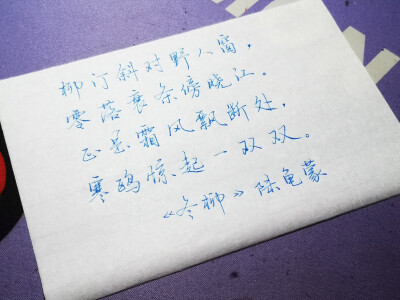 柳汀斜对野人窗，
零落衰条傍晓江。
正是霜风飘断处，
寒鸥惊起一双双。
《冬柳》陆龟蒙